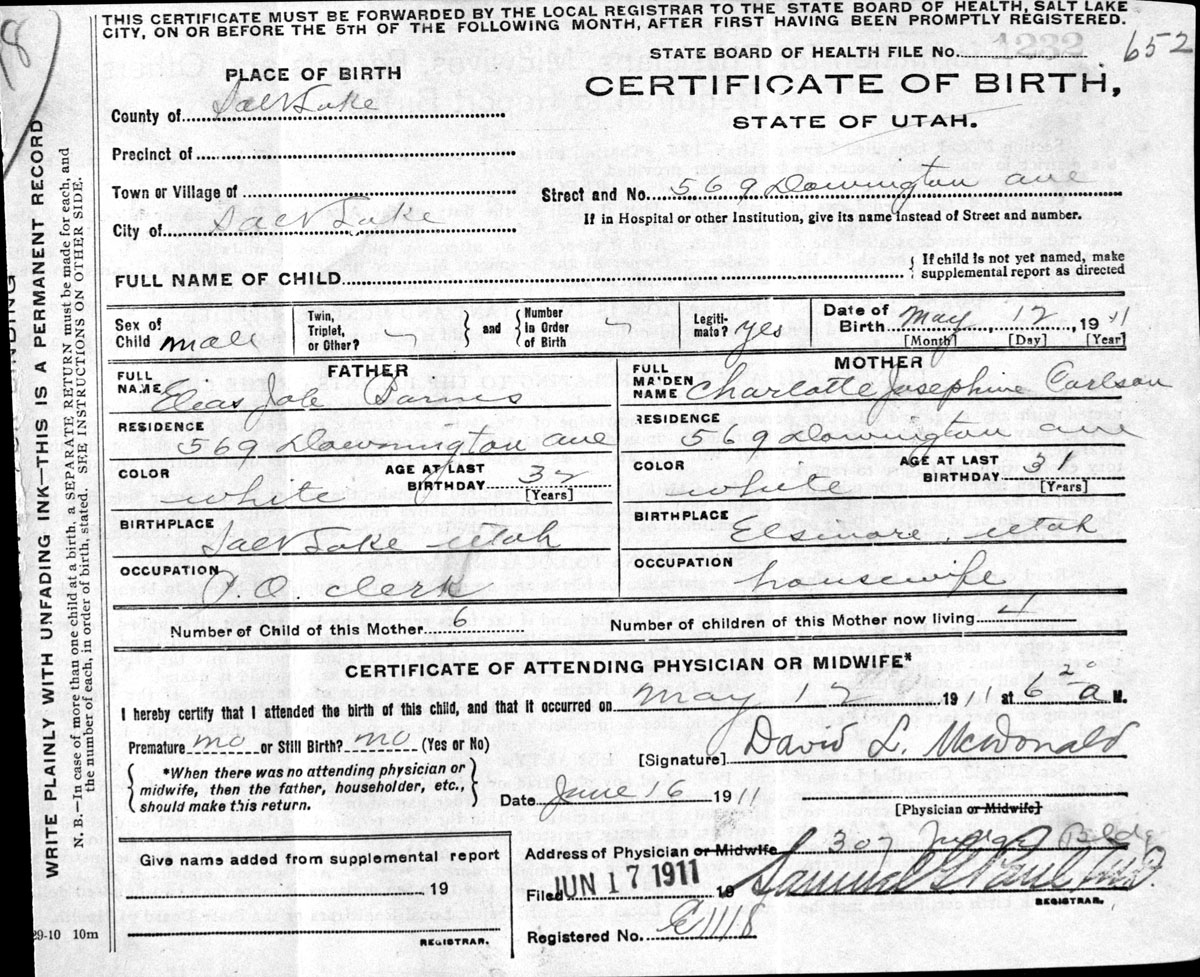 THIS CERTIFICATE MUST BE FORWARDED BY THE LOCAL REGISTRAR TO THE STATE BOARD OF HEALTH, SALT LAKE
CITY, ON OR BEFORE THE 5TH OF THE FOLLOWING MONTH, AFTER FIRST HAVING BEEN PROMPTLY REGISTERED.
STATE BOARD OF HEALTH FILE No. 652
PLACE OF BIRTH
CERTIFICATE OF BIRTH,
STATE OF UTAH.
County of Salt Lake
Precinct of
Town or Village of
Street and No. 569 Downington ave
City of Salt Lake
If in Hospital or other Institution, give its name instead of Street and number.
FULL NAME OF CHILD
If child is not yet named, make
supplemental report as directed
Sex of Child male
Twin, Triplet, or Other?
and Number in Order of Birth
Legiti-mate? yes
Date of Birth May 12 1911
[Month] [Day] [Year]
FATHER
FULL NAME Elias Job Barnes
RESIDENCE
569 Downington ave
COLOR white
AGE AT LAST BIRTHDAY 32
[Years]
BIRTHPLACE
Salt Lake Utah
OCCUPATION
P.O. clerk
MOTHER
FULL MAIDEN NAME Charlotte Josephine Carlson
RESIDENCE
569 Downington ave
COLOR white
AGE AT LAST BIRTHDAY 31
[Years]
BIRTHPLACE
Elsinore, Utah
OCCUPATION
housewife
Number of Child of this Mother 6
Number of children of this Mother now living 4
CERTIFICATE OF ATTENDING PHYSICIAN OR MIDWIFE*
I hereby certify that I attended the birth of this child, and that it occurred on May 12 1911 at 6 20 a M.
Premature no or Still Birth? no (Yes or No)
[Signature] David L. McDonald
*When there was no attending physician or
midwife, then the father, householder, etc.,
should make this return.
Date June 16 1911
[Physician or Midwife]
Give name added from supplemental report
19
REGISTRAR.
Address of Physician or Midwife 307 Judge Bldg
Filed JUN 17 1911 19 Samuel G Paul M.D.
REGISTRAR.
Registered No. E 1118
29-10 10m
WRITE PLAINLY WITH UNFADING INK—THIS IS A PERMANENT RECORD
N. B.—In case of more than one child at a birth, a SEPARATE RETURN must be made for each, and
the number of each, in order of birth, stated. SEE INSTRUCTIONS ON OTHER SIDE.